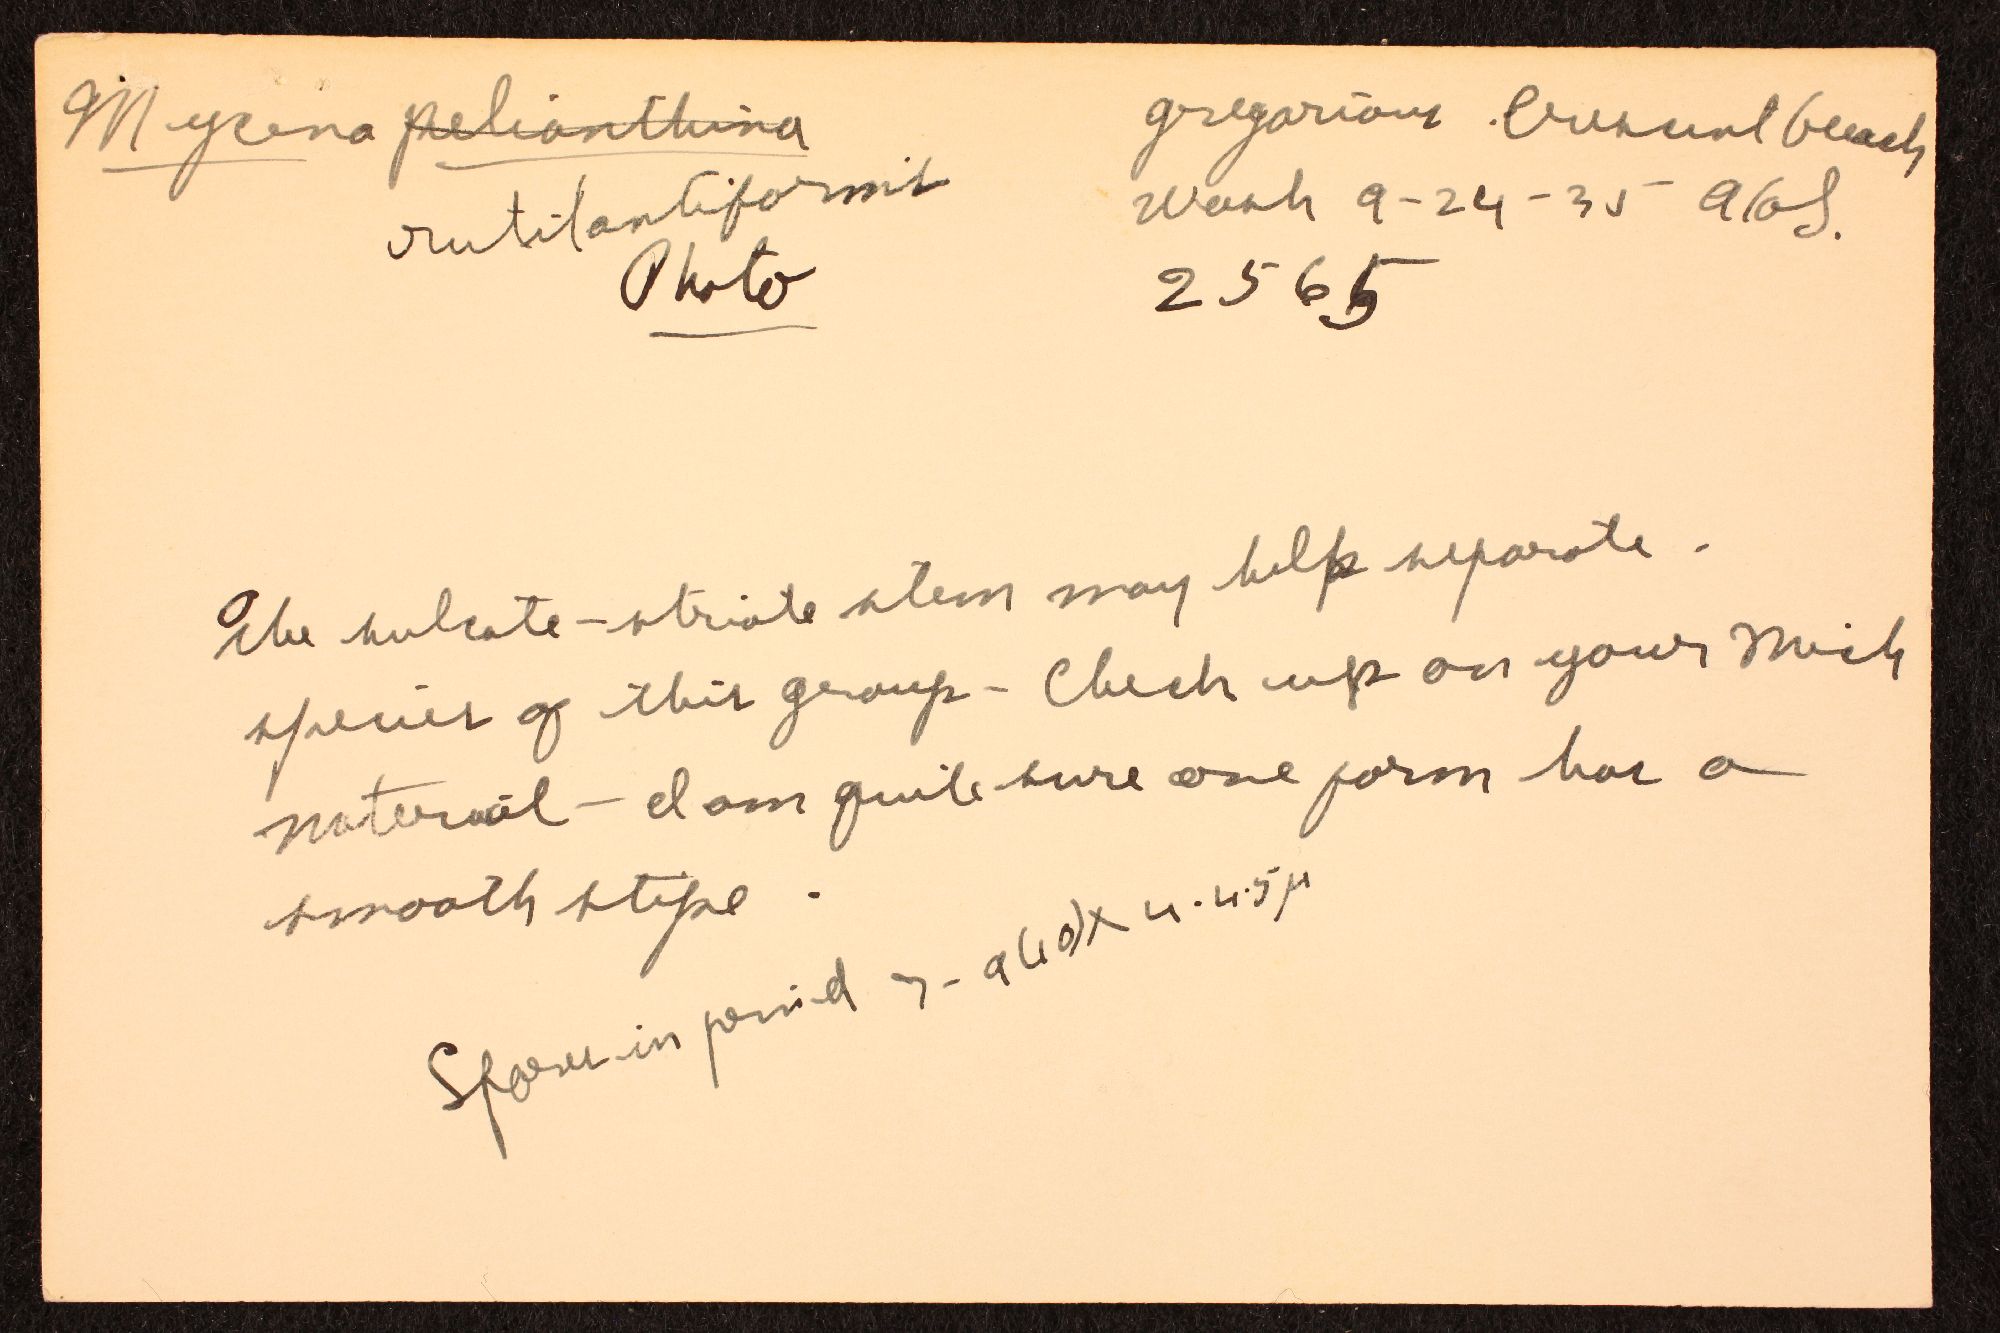 Mycena pelianthina
rutilantiformis
Photo
gregarious. Cresent beach
Wash 9-24-35 AHS.
2565
The sulcate-striate stem may help separate.
species of this group - Check up on your Mich
material - I am quite sure one form has a
smooth stipe.
Spores in 7-9(10) X 4-4.5 μ